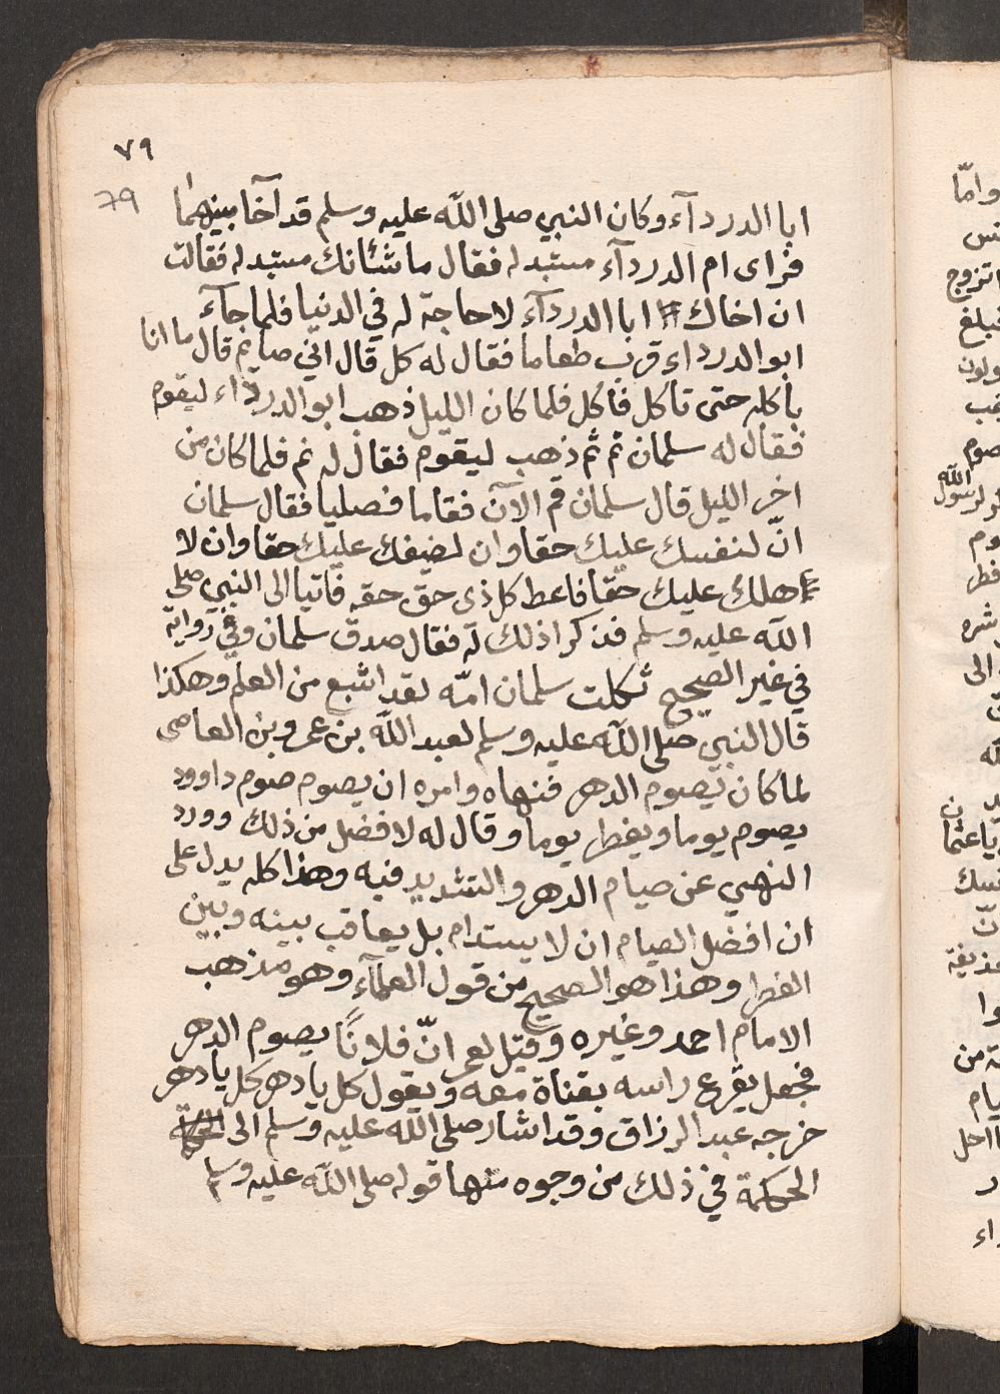 ٧٩
79
ابا الدردآء وكان النبي صلى الله عليه وسلم قد آخا بينهما
فراى ام الدردآء متبدله فقال ما شئانك متبدله فقالت
ان اخاك ابا الدردآء لا حاجة له في الدنيا فلما جآء
ابو الدرداء قرب طعاما فقال له كل قال اني صايم قال ما انا
باكله حتى تاكل فاكل فلما كان الليل ذهب ابو الدرداء ليقوم
فقال له سلمان نم ثم ذهب ليقوم فقال له نم فلما كان من
اخر الليل قال سلمان قم الآن فقاما فصليا فقال سلمان
انّ لنفسك عليك حقا وان لضيفك عليك حقا وان لا
هلك عليك حقا فاعط كل ذى حق حقه فاتيا الى النبي صلى
الله عليه وسلم فذكرا ذلك له فقال صدق سلمان وفي رواية
في غير الصحيح ثكلت سلمان امّه لقد اشبع من العلم وهكذا
قال النبي صلى الله عليه وسلم لعبد الله بن عمرو بن العاصى
لما كان يصوم الدهر فنهاه وامره ان يصوم صوم داوود
يصوم يوما ويفطر يوما وقال له لا افضل من ذلك وورد
النهي عن صيام الدهر والتشديد فيه وهذا كله يدل على
ان افضل الصيام ان لا يستدام بل يعاقب بينه وبين
الفطر وهذا هو الصحيح من قول العلمآء وهو مذهب
الامام احمد وغيره وقيل لعمر انّ فلانًا يصوم الدهر
فجعل يقرع راسه بقناة معه ويقول كل يا دهر كل يا دهر
خرجه عبد الرزاق وقد اشار صلى الله عليه وسلم الى
الحكمة في ذلك من وجوه منها قوله صلى الله عليه وسلم
واما
اتزوج
فبلغ
صوم
لرسول
الله